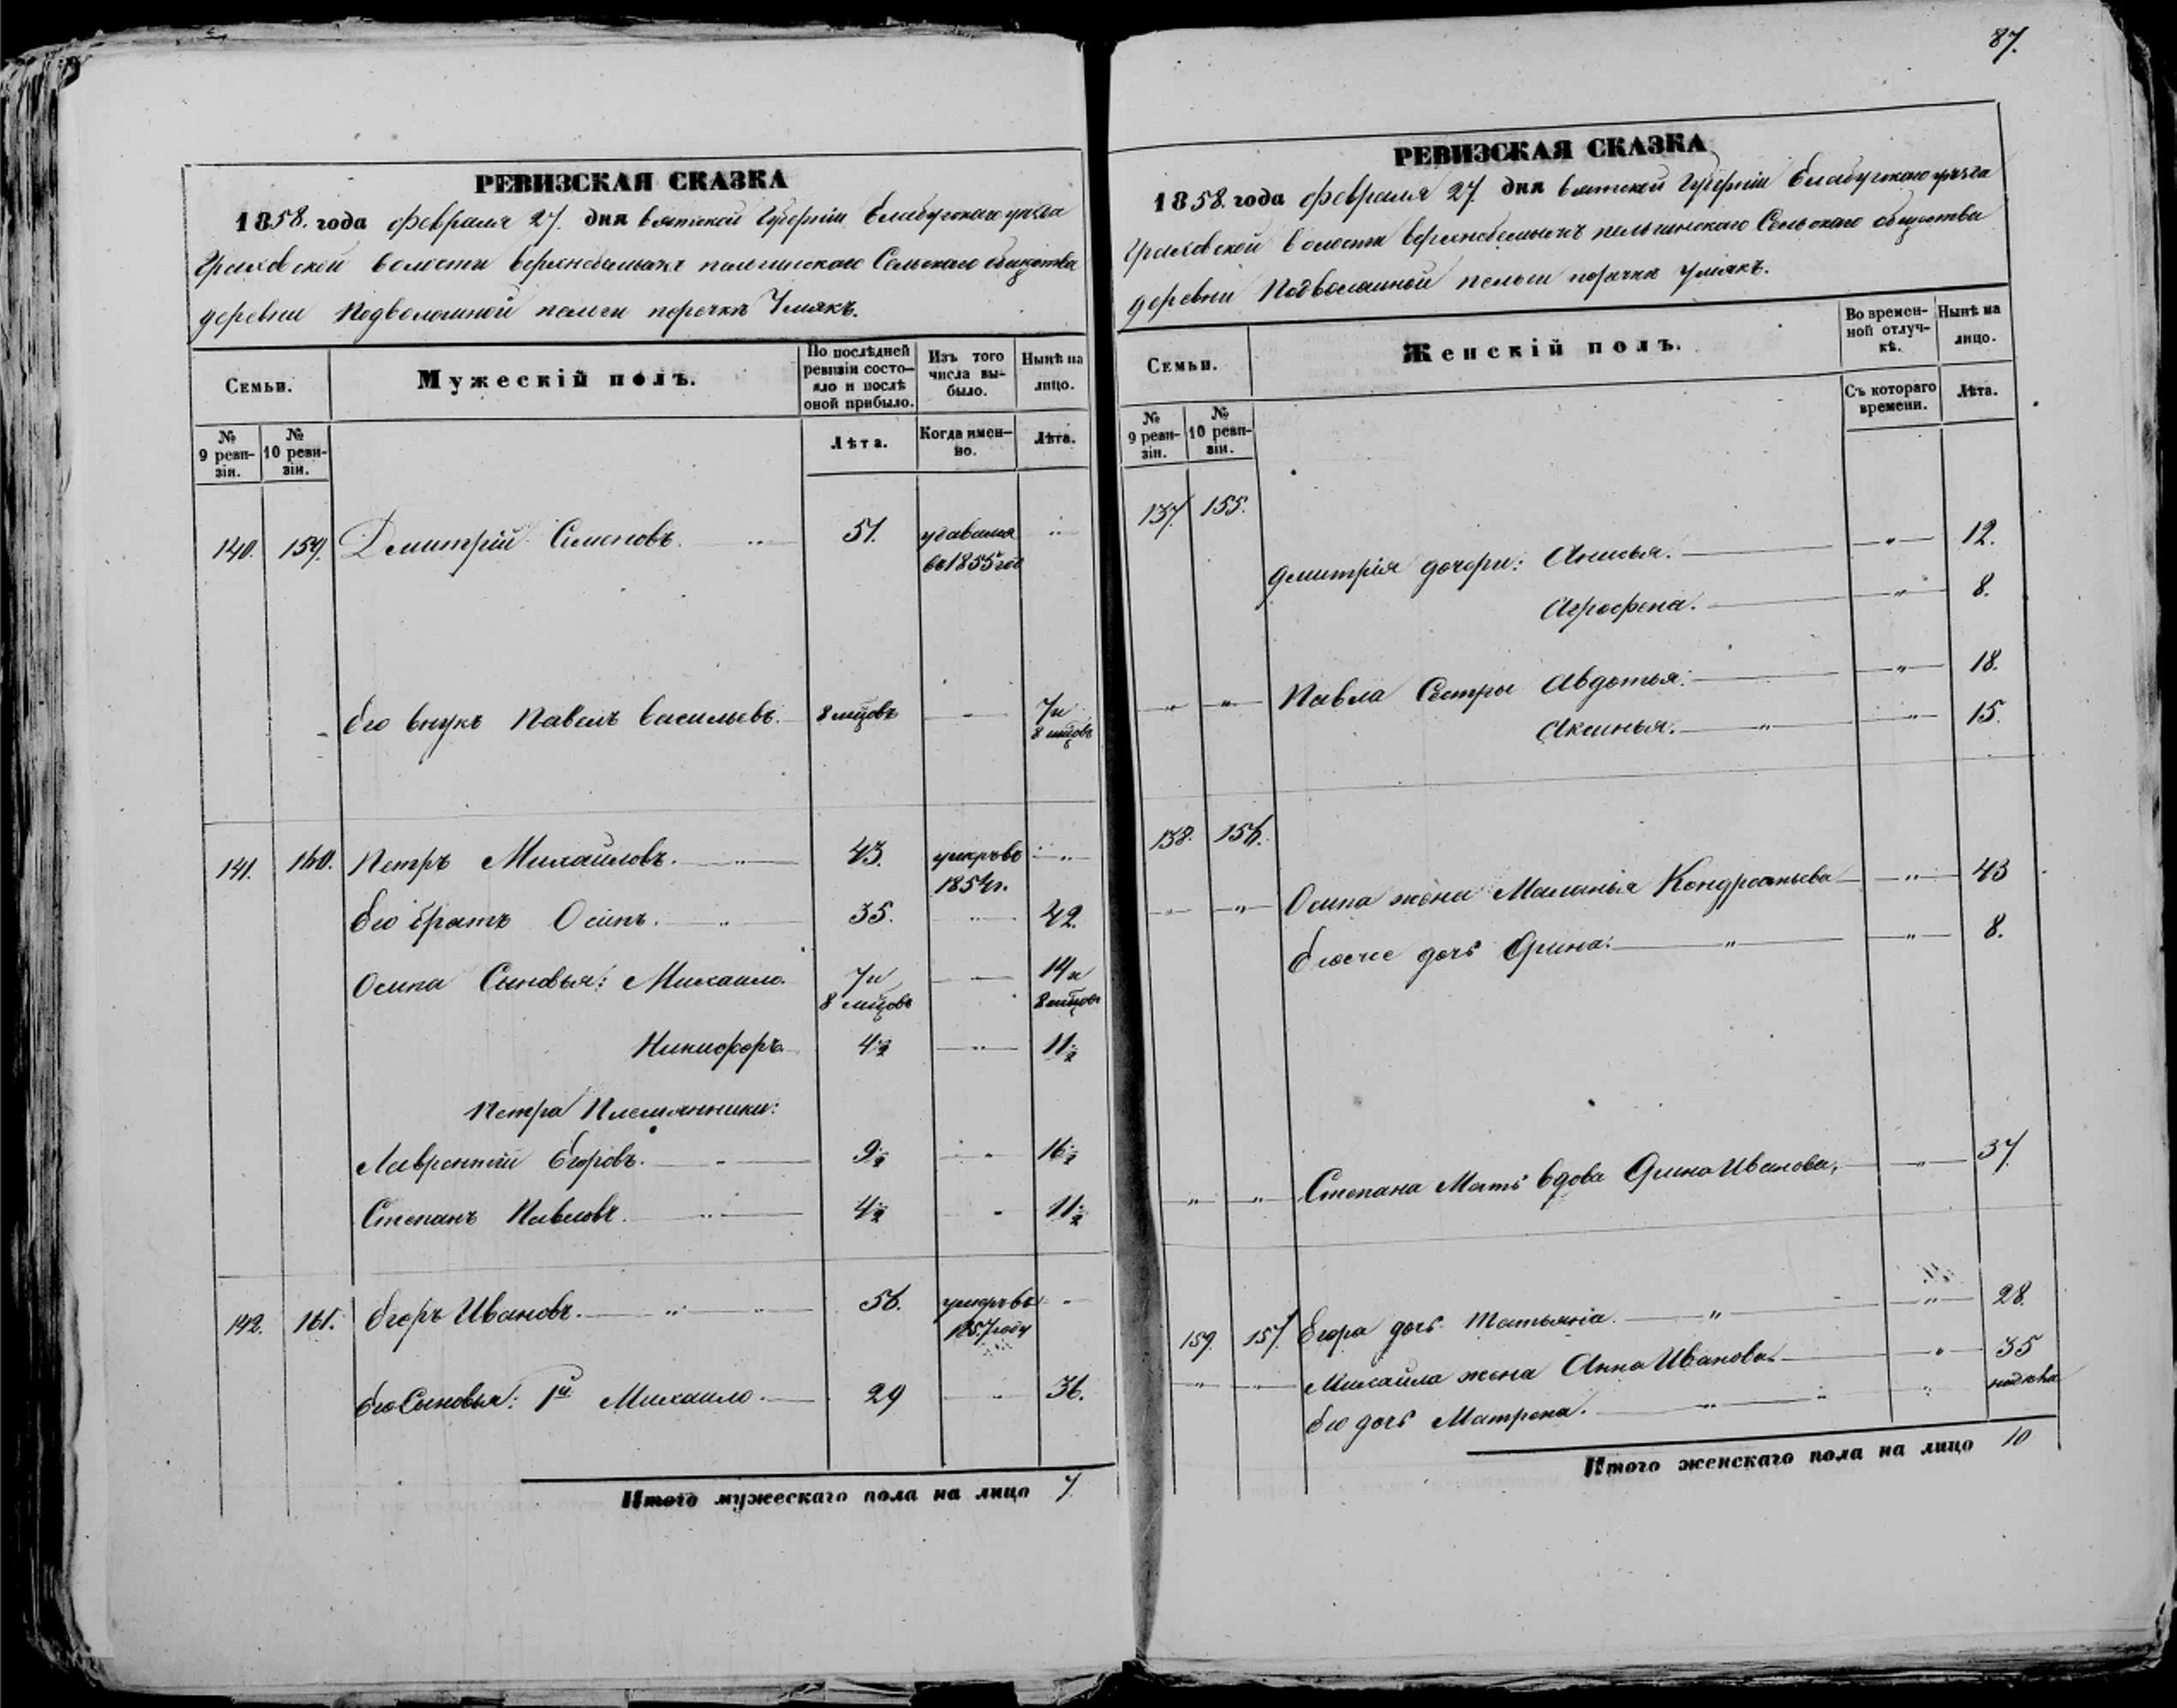 РЕВИЗСКАЯ СКАЗКА
1858. года февраля 27. дня вятской Губерніи Елабугскаго уѣзда
Граховской волости пельгинскаго Сельскаго общества
деревни Подволошной пельги порѣчкѣ Умякъ.
Семьи.
Мужескій полъ.
По послѣдней ревизіи состояло и послѣ оной прибыло.
Изъ того числа выбыло.
Нынѣ на лицо.
№ 9 ревизіи.
№ 10 ревизіи.
Лѣта.
Когда именно.
Лѣта.
140. 159. Дмитрій Семеновъ. 51. удавился
во 1855 год
его внукъ Павелъ васильевъ. 8 мцовъ 7 и
8 мцовъ
141. 160. Петръ Михайловъ. 43. умеръ во
1854 г.
его братъ Осипъ. 35. 42.
Осипа Сыновья: Михаило. 7 и 14 и
8 мцовъ 8 мцовъ
Никифоръ. 4 ½ 11 ½
Петра Племянники:
Лаврентій Егоровъ. 9 ½ 16 ½
Степанъ Павловъ. 4 ½ 11 ½
142. 161. Егоръ Ивановъ. 56. умеръ въ
1857 году
его Сыновья: 1й Михаило 29 36.
Итого мужескаго пола на лицо 7
87.
РЕВИЗСКАЯ СКАЗКА
1858. года февраля 27. дня вятской Губерніи Елабугскаго уѣзда
Граховской волости пельгинскаго Сельскаго общества
деревни Подволошной пельги порѣчкѣ Умякъ.
Семьи.
Женскій полъ.
Во временной отлучкѣ.
Нынѣ на лицо.
№ 9 ревизіи.
№ 10 ревизіи.
Съ котораго времени.
Лѣта.
137. 155.
дмитрія дочери: Анисья. 12.
Агрофена. 8.
Павла Сестры Авдотья. 18.
Аксинья. 15.
138. 156.
Осипа жена Маланья Кондратьева 43
его же дочь Орина. 8.
Степана Мать вдова Орина Иванова, 37
159. 157. Егора дочь Татьяна. 28.
Михаила жена Анна Иванова. 35
его дочь Матрена. недѣля
Итого женскаго пола на лицо 10